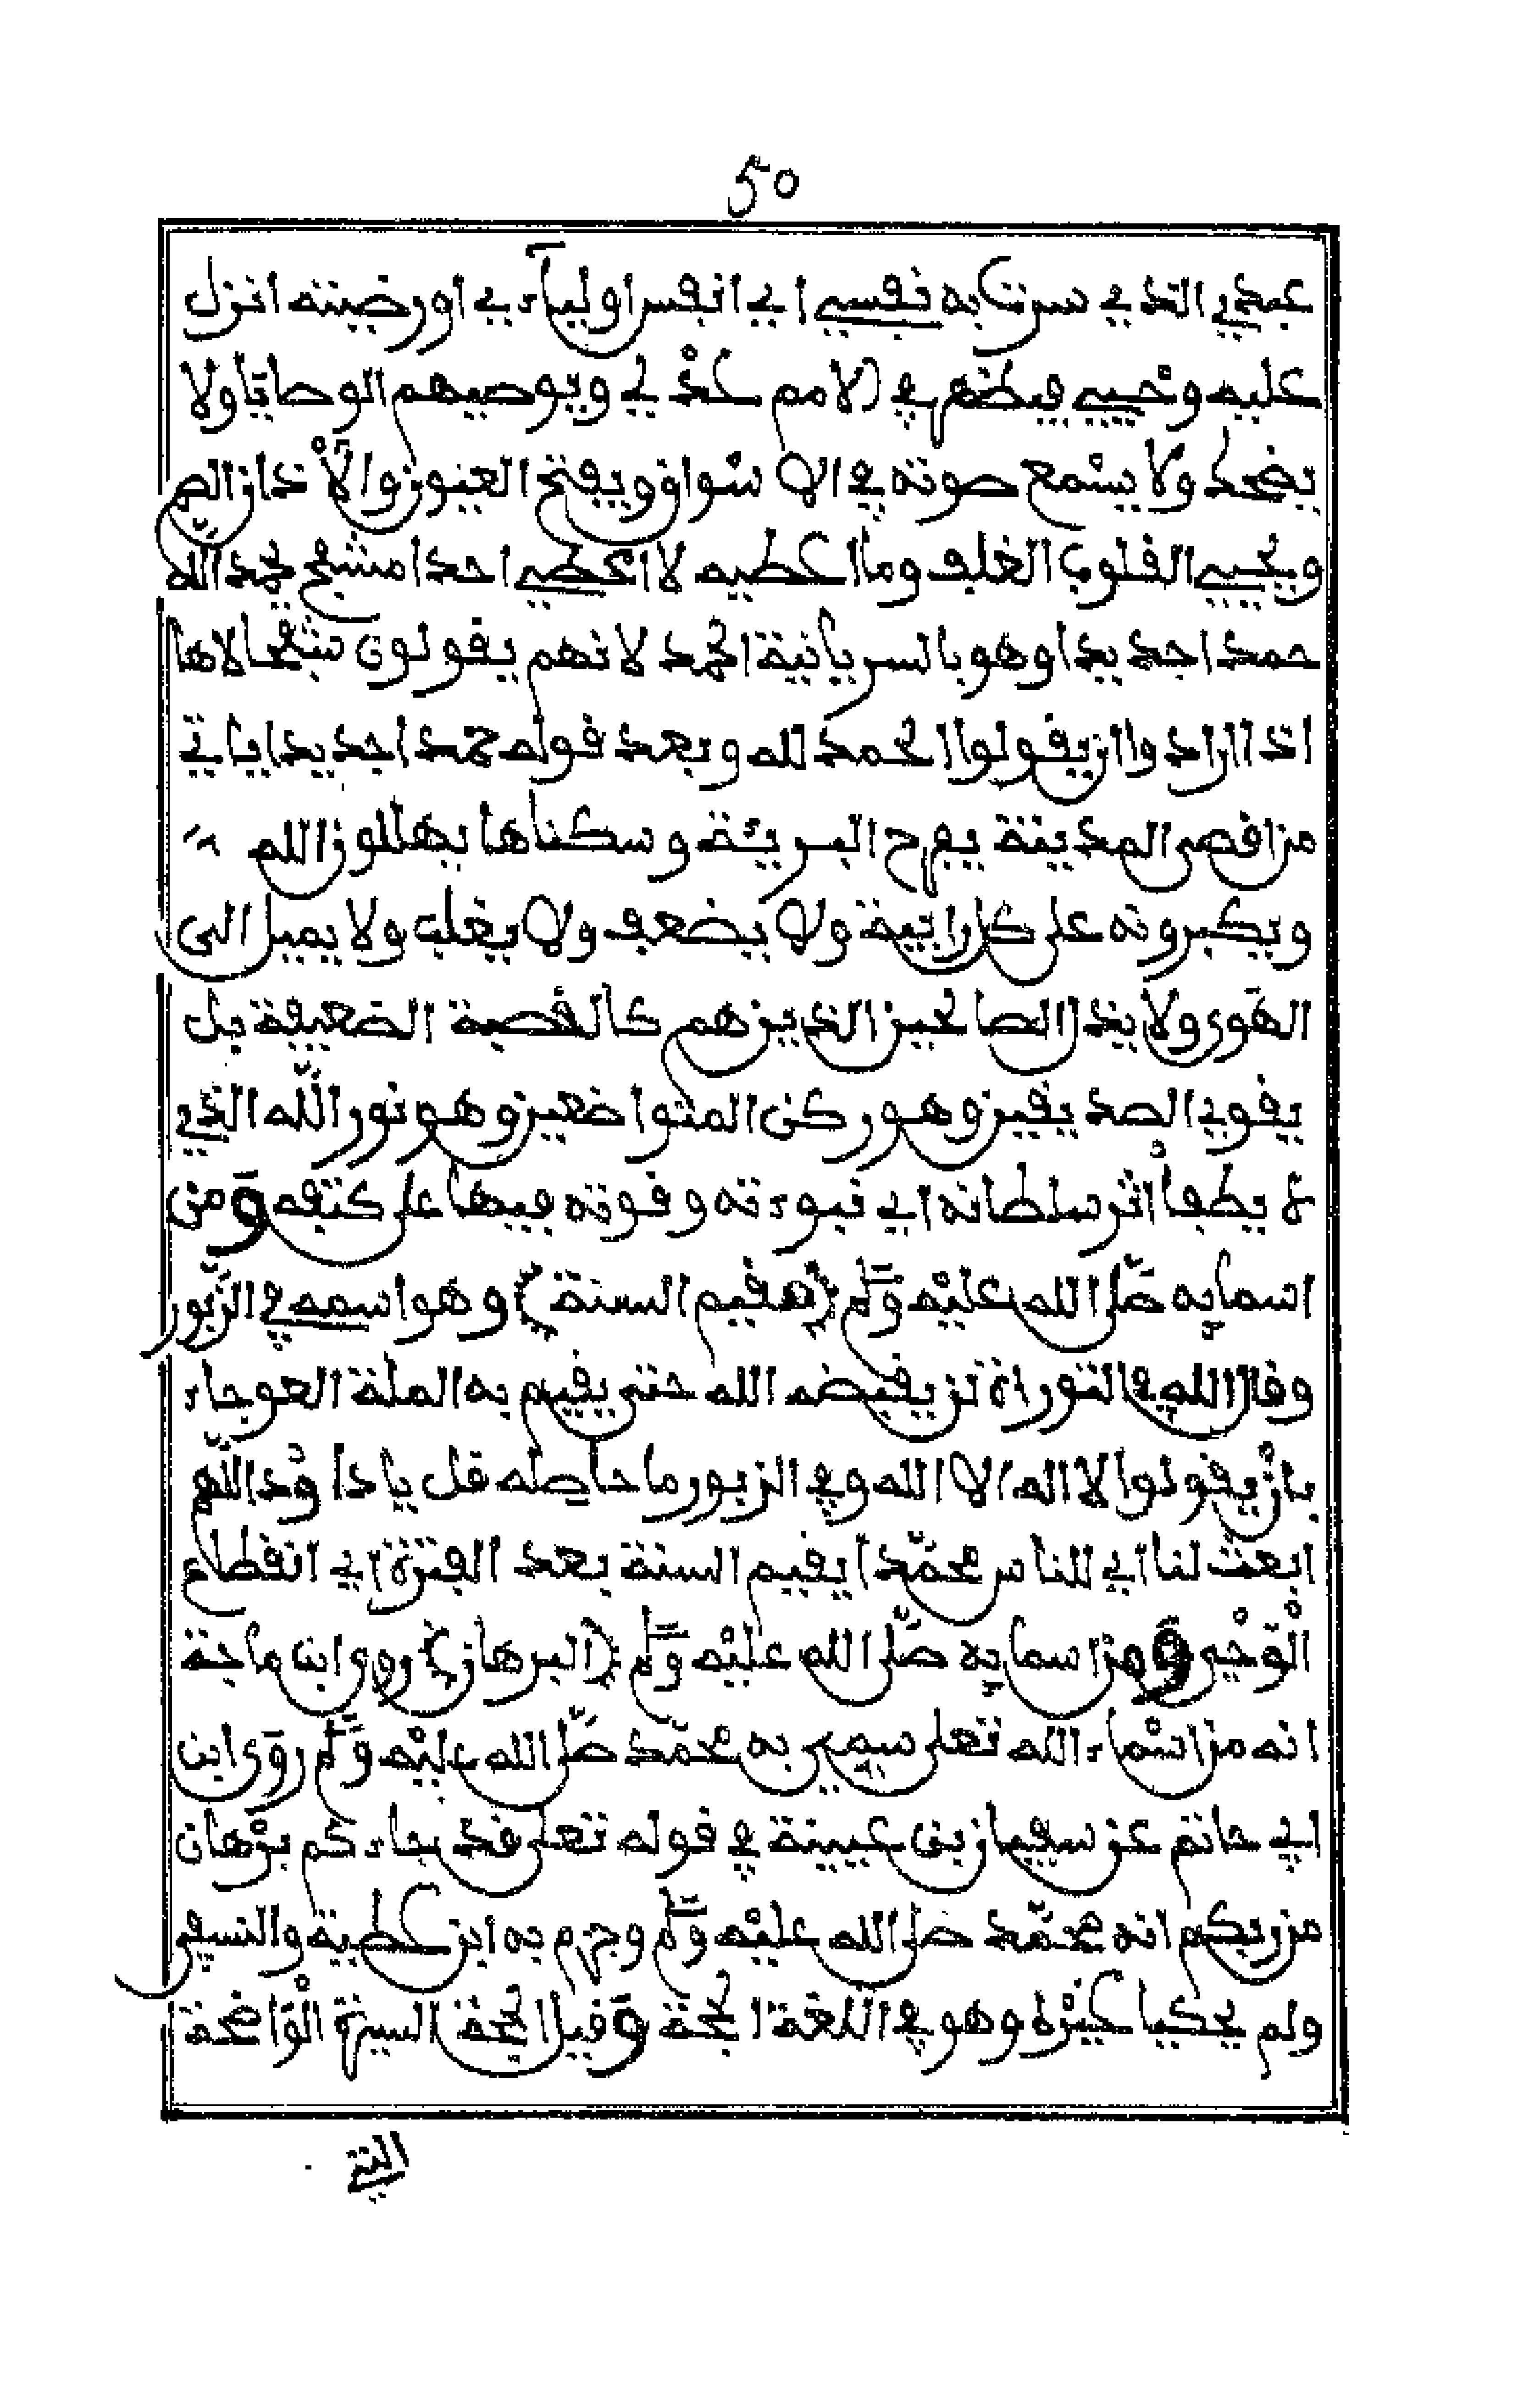 50
عبدي الذي سرت به نفسي اي انفس اولياءي او رضيته انزل
عليه وحيي فيظهر في الامم عدلي ويوصيهم الوصايا ولا
يضحك ولا يسمع صوته في الاسواق ويفتح العيون والاذان الصم
ويحيي القلوب الغلف وما اعطيه لا اعطي احدا مشفح يحمد الله
حمدا جديدا وهو بالسريانية الحمد لانهم يقولون شفحا لاها
اذا ارادوا ان يقولوا الحمد لله وبعد قوله حمدا جديدا ياتي
من اقصى المدينة يفرح البرية وسكناها يهللون الله
ويكبرونه على كل رابية ولا يضعف ولا يغلب ولا يميل الى
الهوى ولا يذل الصالحين الذين هم كالقصبة الضعيفة بل
يقوي الصديقين وهو ركن المتواضعين وهو نور الله الذي
لا يطفا اثر سلطانه اي نبوءته وقوته فيها على كتفه ومن
اسمايه صلى الله عليه وسلم {مقيم السنة} وهو اسمه في الزبور
وقال الله في التوراة لن يقبضه الله حتى يقيم به الملة العوجاء
بان يقولوا لا اله الا الله وفي الزبور ما حاصله قل يا داود اللهم
ابعث لنا اي للناس محمدا يقيم السنة بعد الفترة اي انقطاع
الوحي ومن اسمايه صلى الله عليه وسلم {البرهان} روى ابن ماجة
انه من اسماء الله تعلى سمي به محمد صلى الله عليه وسلم روى ابن
ابي حاتم عن سفيان بن عيينة في قوله تعلى قد جاءكم برهان
من ربكم انه محمد صلى الله عليه وسلم وجزم به ابن عطية والنسفي
ولم يحكيا غيره وهو في اللغة الحجة وقيل الحجة السيرة الواضحة
التي